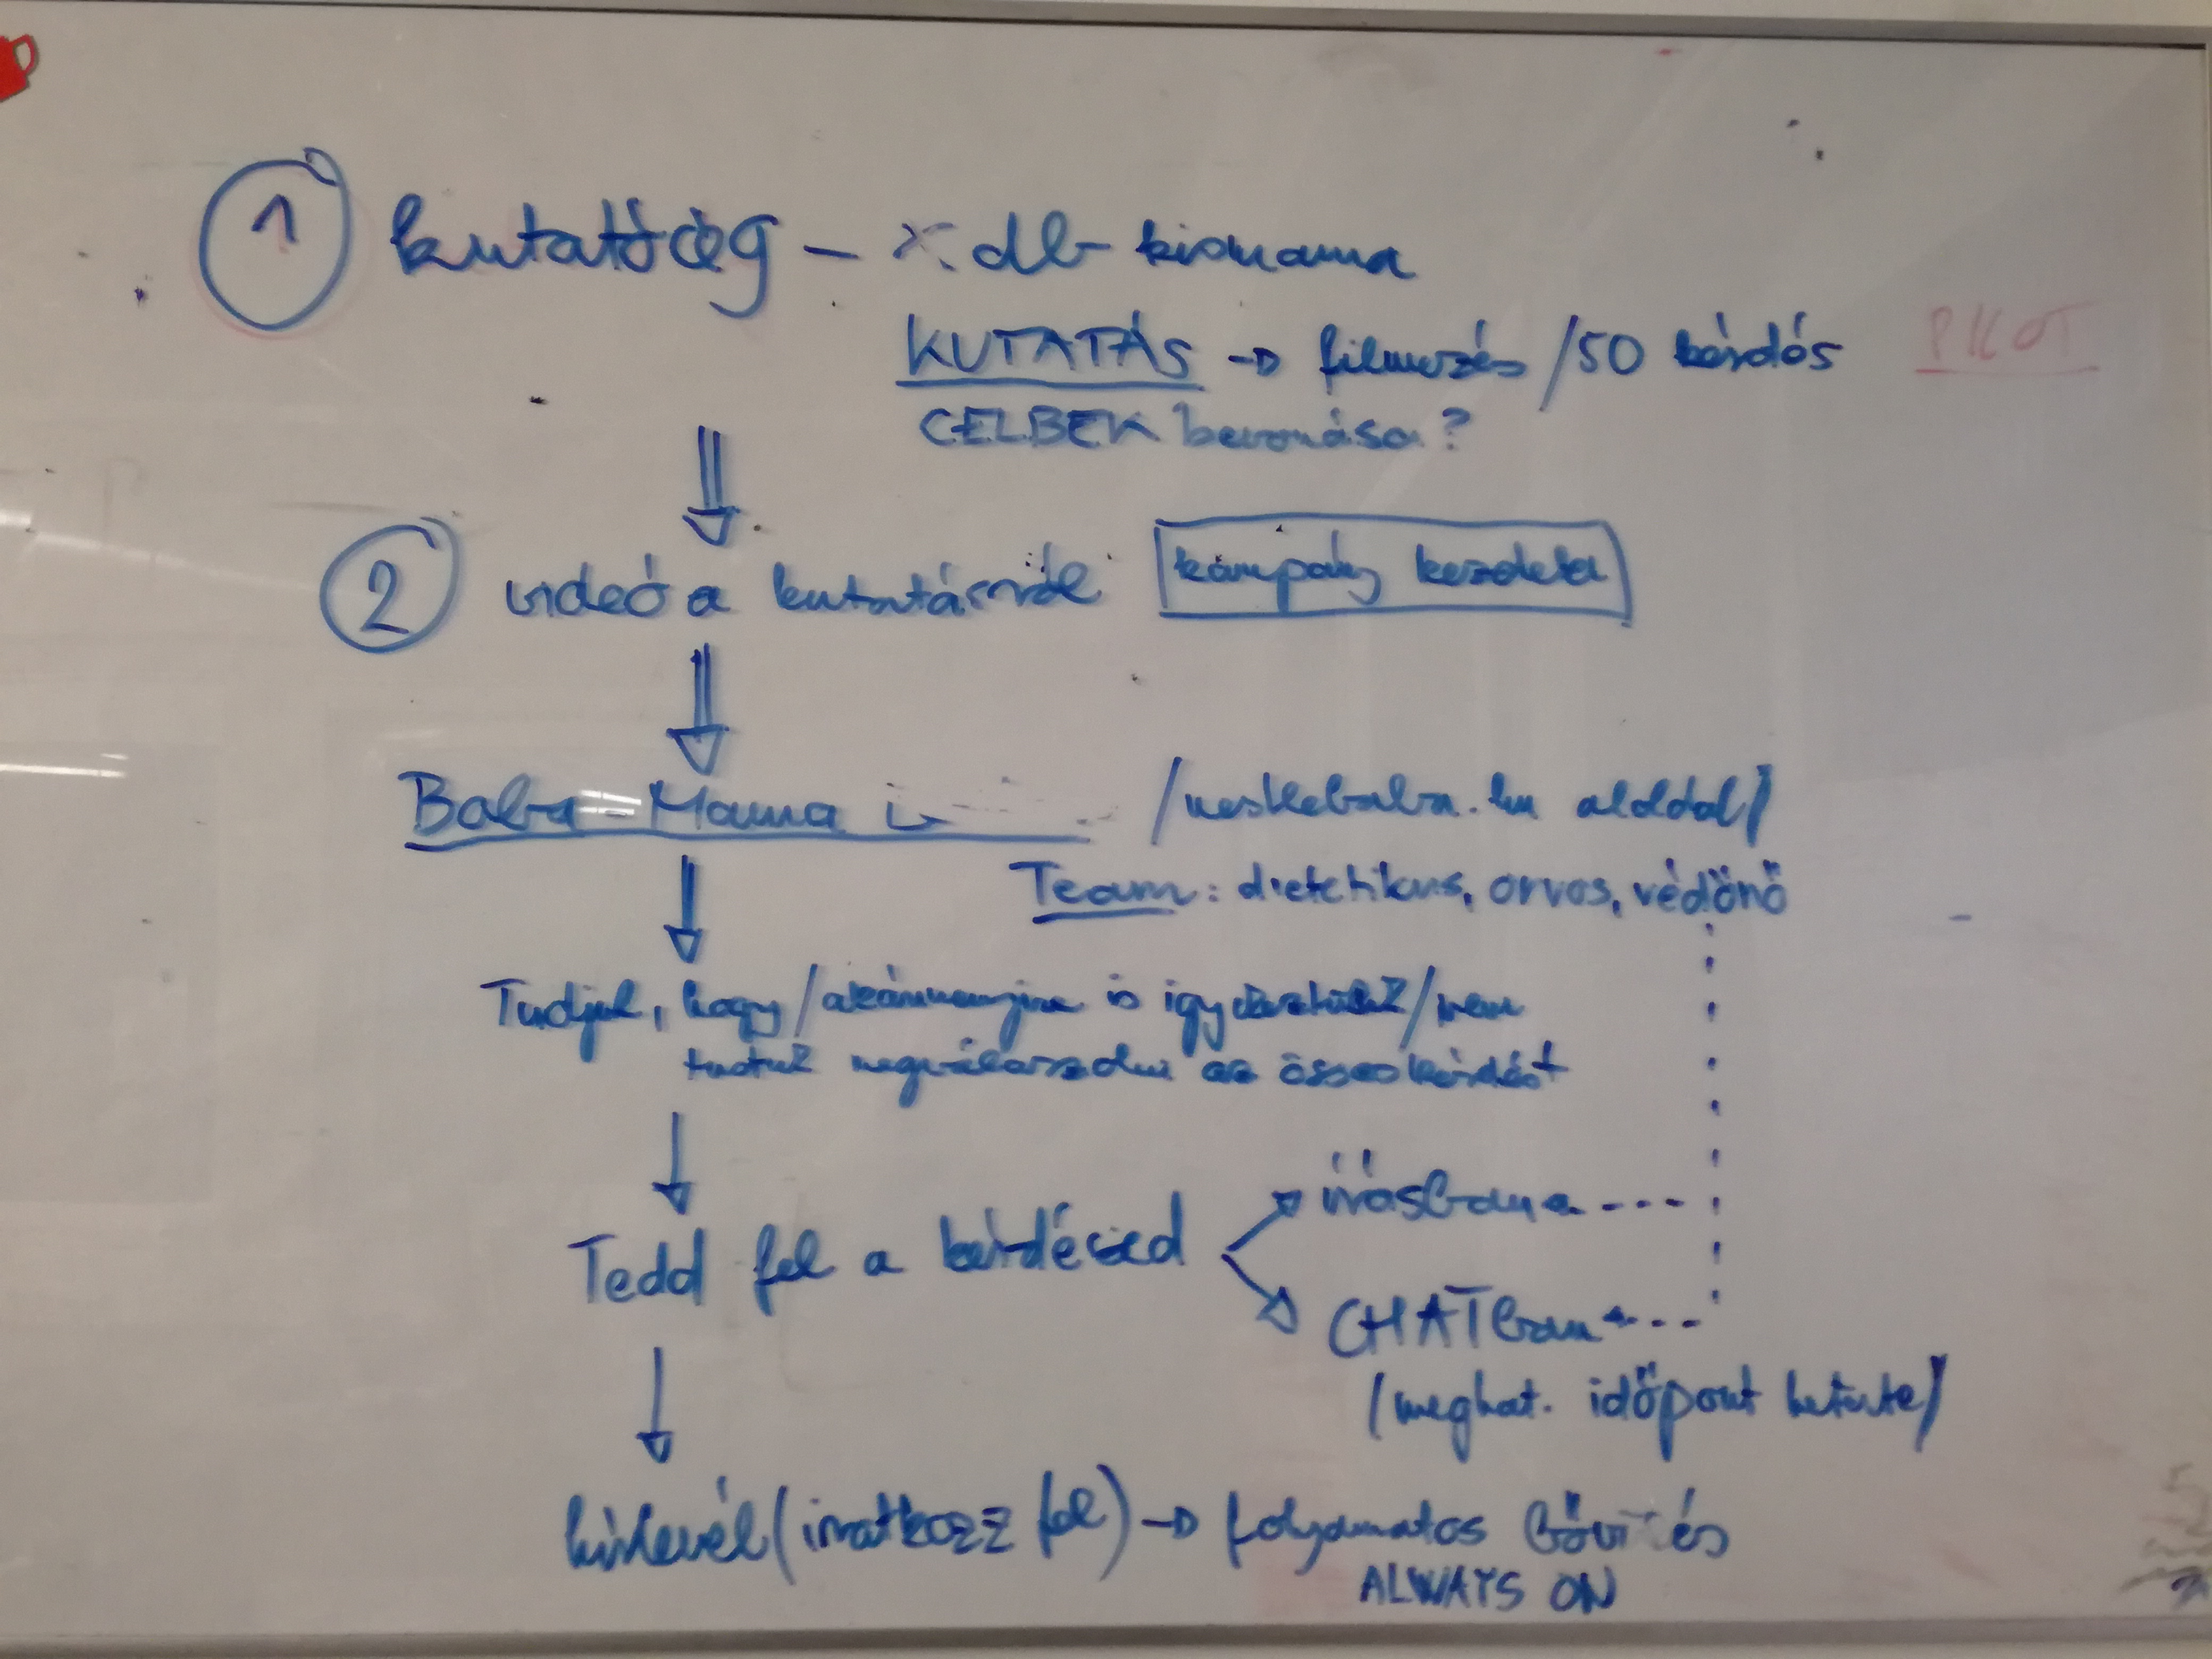 1 kutatócég – x db kismama
KUTATÁS → filmezés /50 kérdés
PILOT
CELBEK bevonása?
2 videó a kutatásról kampány kezdete
Baba-Mama /nestlebaba.hu aloldal/
Team: dietetikus, orvos, védőnő
Tudjuk, hogy /akármennyire is igyekeztünk/ nem
tudtuk megválaszolni az összes kérdést
írásban
Tedd fel a kérdésed
CHATban
/meghat. időpont hetente/
hírlevél (iratkozz fel) → folyamatos bővítés
ALWAYS ON